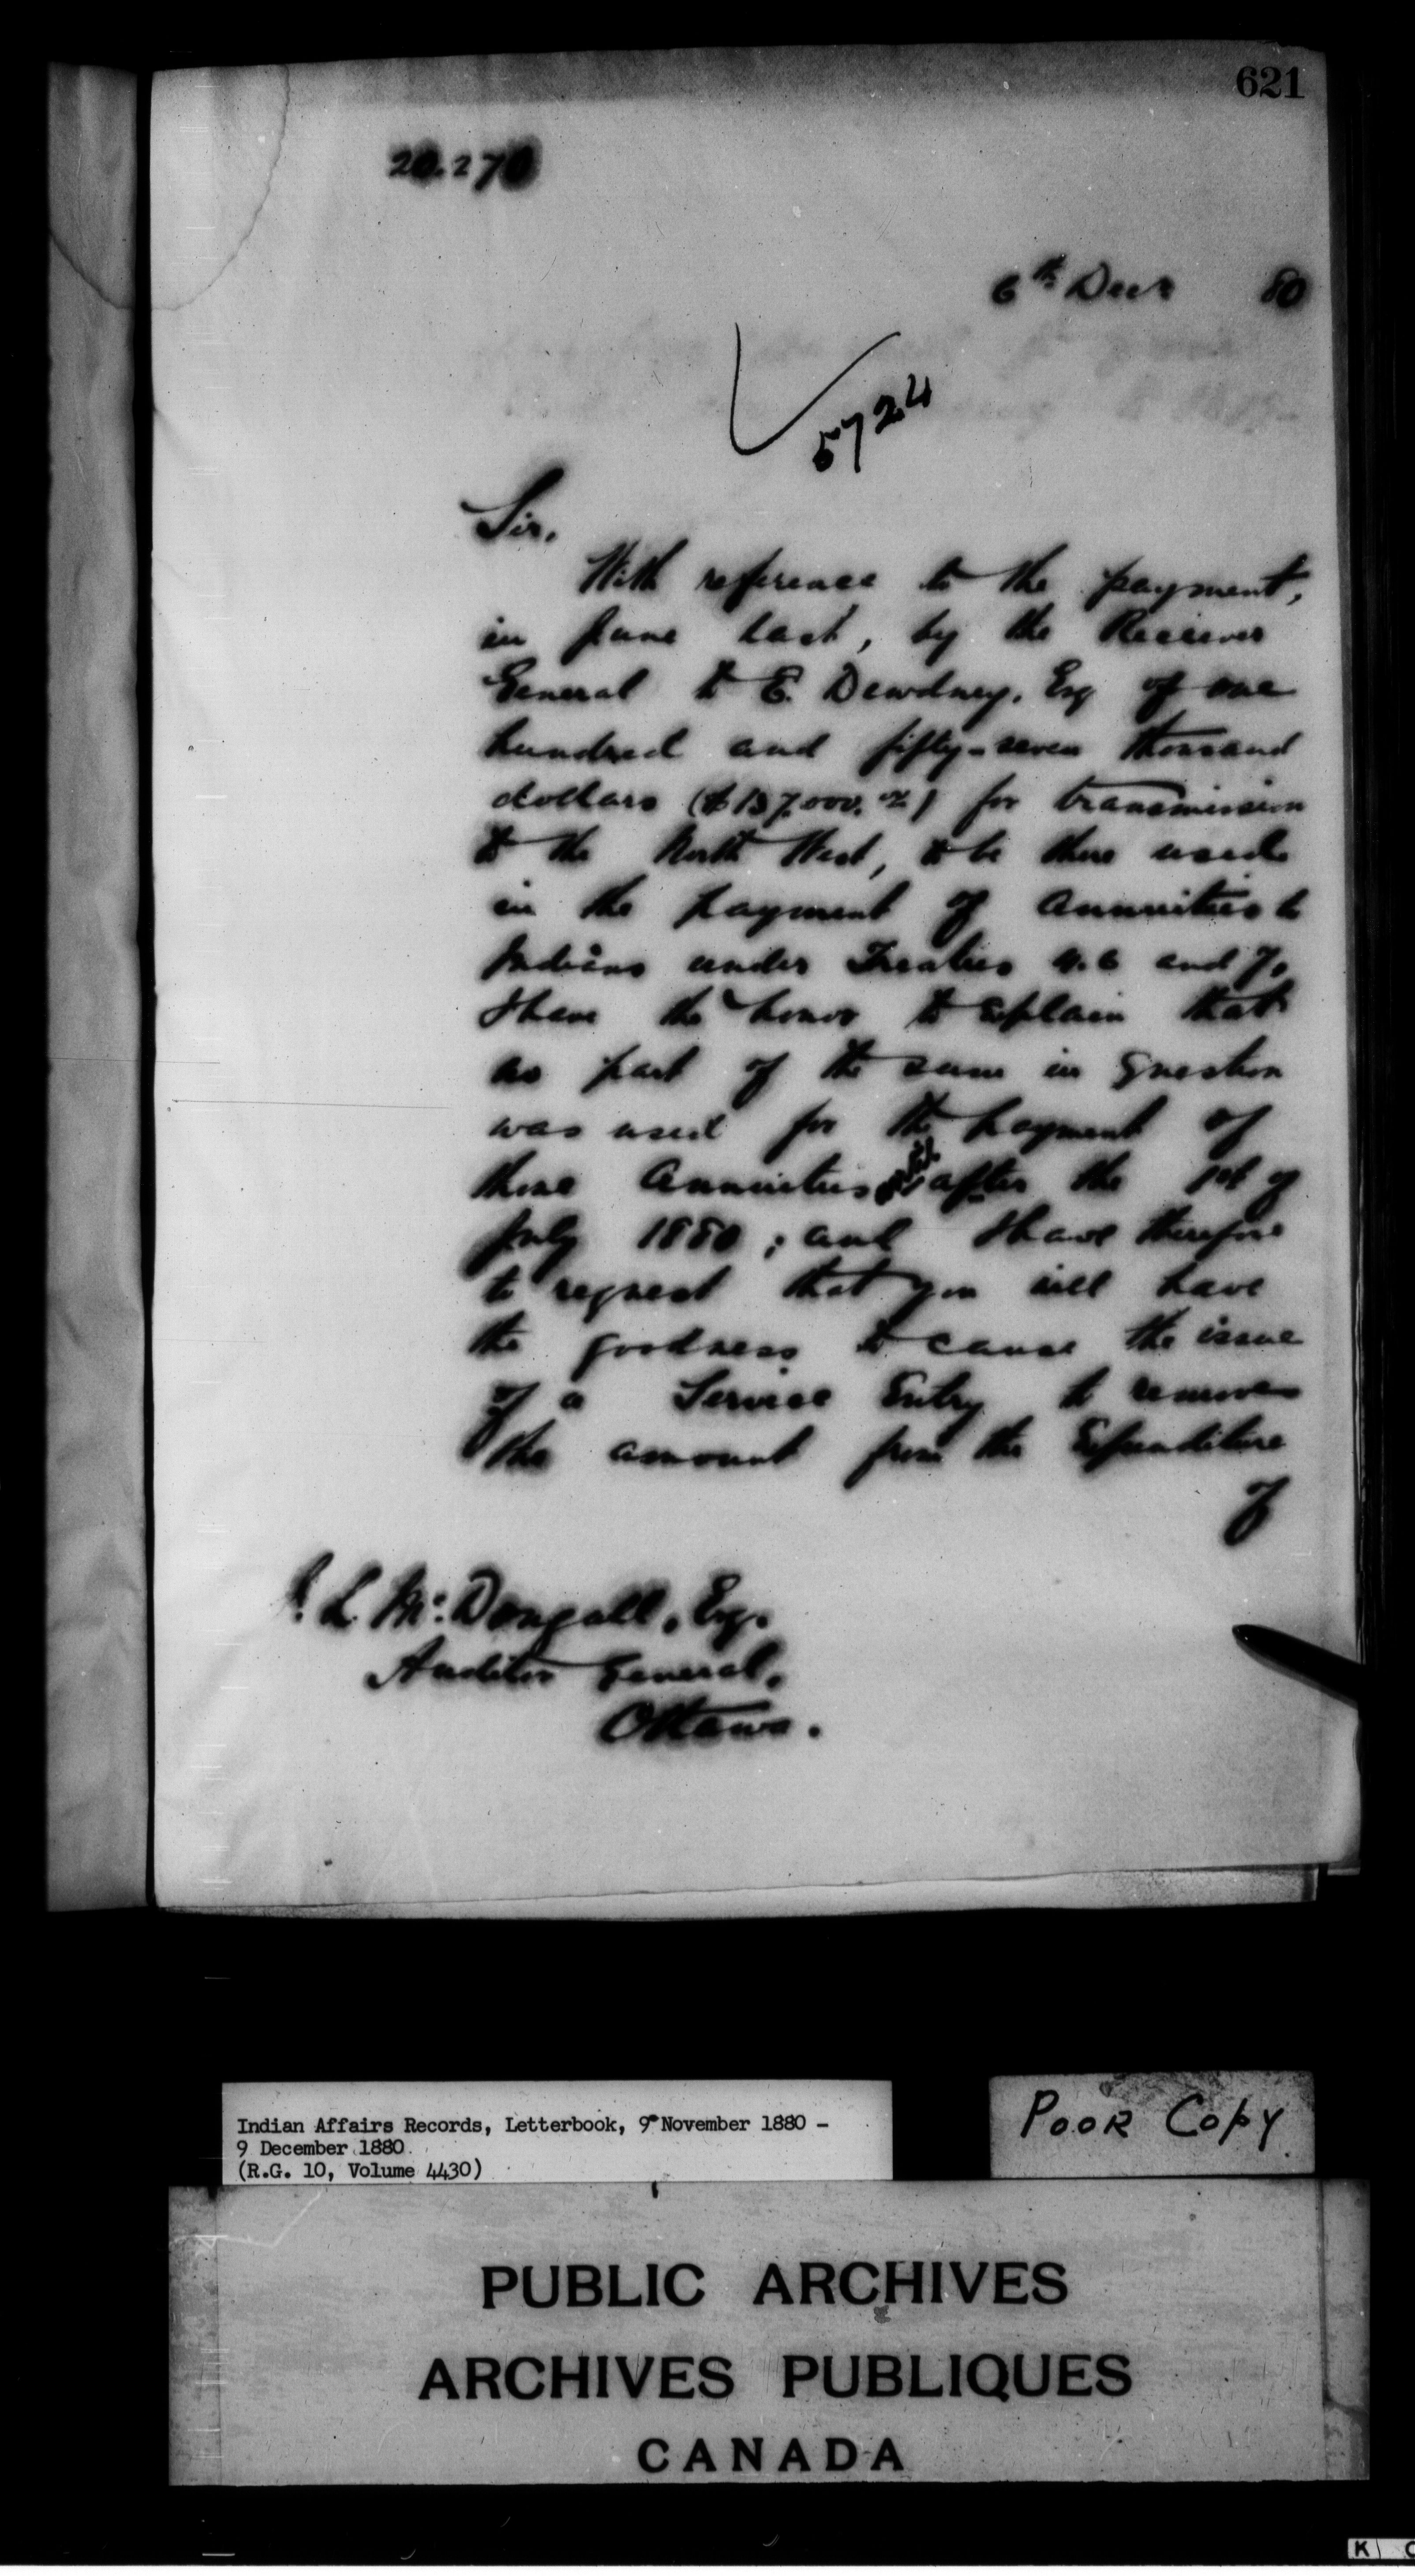 621
20.270
6th Decr 80
5724
Sir,
With reference to the payment,
in June last, by the Receiver
General to E. Dewdney, Esq of one
hundred and fifty-seven thousand
dollars ($157,000.00/) for transmission
to the North West, to be there used
in the payment of Annuities to
Indians under Treaties 4.6 and 7,
I have the honor to explain that
no part of the sum in question
was used for the payment of
those Annuities until after the 1st of
July 1880; and I have therefore
to request that you will have
the goodness to cause the issue
of a Service Entry to remove
the amount from the Expenditure
of
J. L. McDougall, Esq.
Auditor General,
Ottawa.
Indian Affairs Records, Letterbook, 9 November 1880 -
9 December 1880
(R.G. 10, Volume 4430)
POOR COPY
PUBLIC ARCHIVES
ARCHIVES PUBLIQUES
CANADA
K